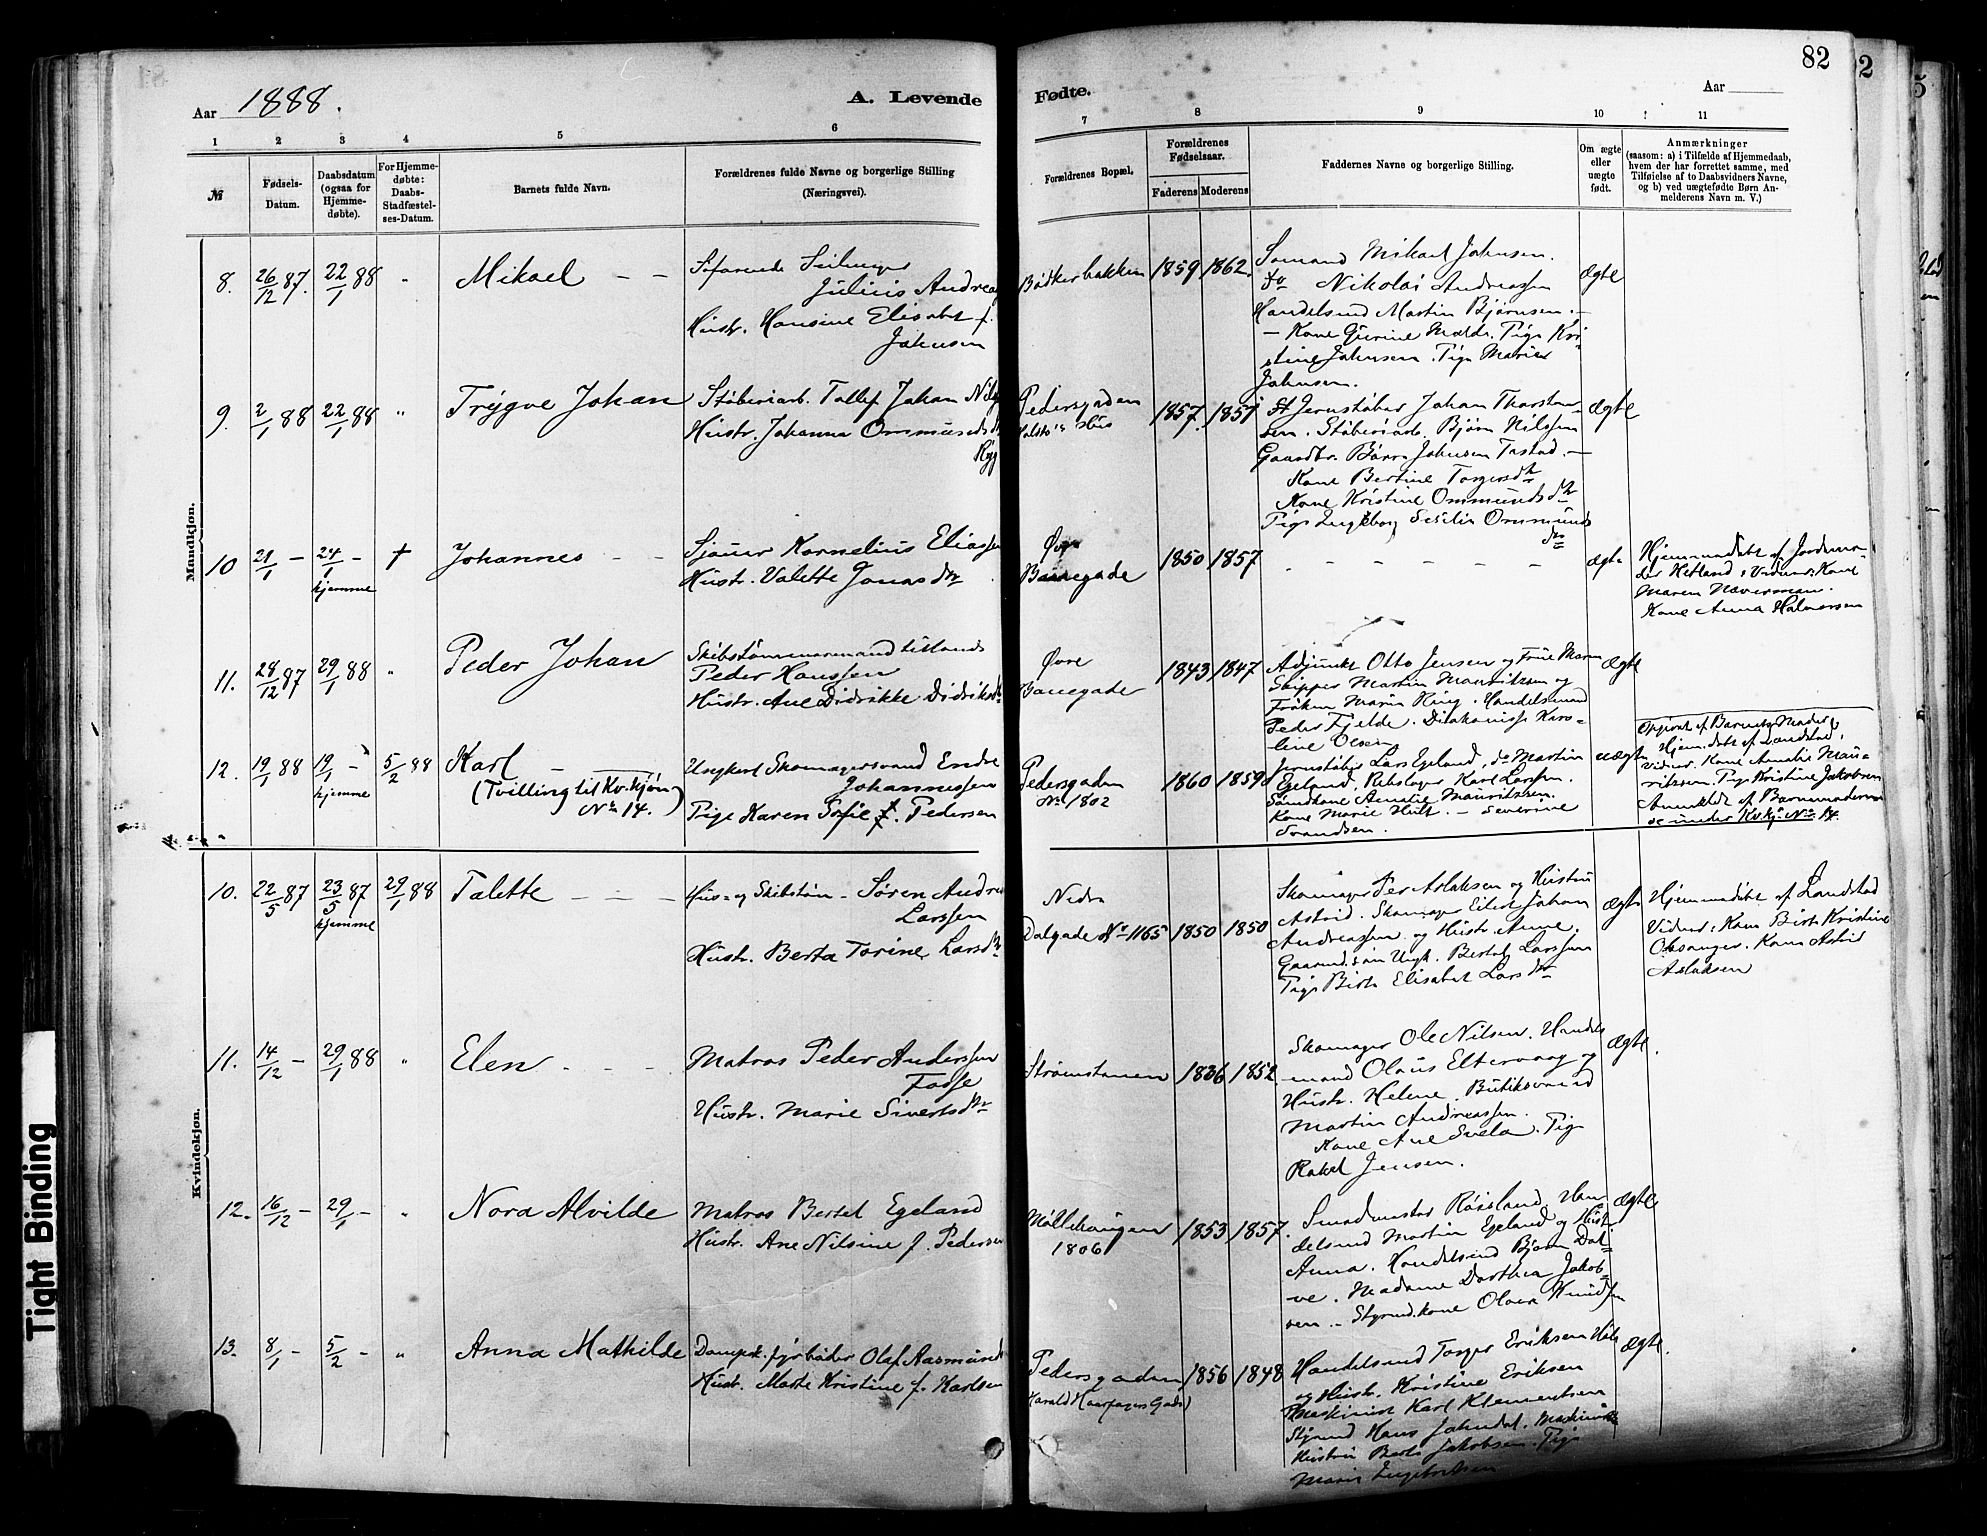 82
Aar 1888.
A. Levende
Fødte.
Aar
1 2 3 4 5 6
7 8 9 10 11
№
Fødsels-
Datum.
Daabsdatum
(ogsaa for
Hjemme-
døbte).
For Hjemme-
døbte:
Daabs-
Stadfæstel-
ses-Datum.
Barnets fulde Navn.
Forældrenes fulde Navne og borgerlige Stilling
(Næringsvei).
Forældrenes Bopæl.
Forældrenes
Fødselsaar.
Faderens Moderens
Faddernes Navne og borgerlige Stilling.
Om ægte
eller
uægte
født.
Anmærkninger
(saasom: a) i Tilfælde af Hjemmedaab,
hvem der har forrettet samme, med
Tilføielse af to Daabsvidners Navne,
og b) ved uægtefødte Børn An-
melderens Navn m. V.)
Mandkjøn.
8. 26/12 87. 22/1 88 " Mikael - -
Julius Andreas
Hustr. Hansine Elisabet f.
Johnsen
Bødkerbakken 1859 1862.
Sømand Mikael Johnsen.
do Nikolai Andreassen
Handelsmd Martin Bjørnsen. -
- Kone Gurine Malde. Pige Kri-
stine Johnsen. Pige Marie
Johnsen.
Ægte
9. 2/1 88 22/1 88 " Trygve Johan
Støberiarb. Tollef Johan
Hustr. Johanna Ommundsdtr
Pedersgaden
Hus
1857. 1857
Jernstøber Johan Thorsten-
sen. Støberiarb. Bjørn Nilssen
Gaardbr. Johnsen Tastad. -
Kone Bertine Torgersdtr
Kone Kristine Ommundsdtr
Pige Ingeborg Sesilie Ommunds
dtr
Ægte
10 21/1 - 24/1 - † Johannes - -
hjemme
Sjauer Kornelius Eliassen
Hustr. Valette Jonasdtr
Øvre
Banegade
1850 1857
- - - - -
ægte
Hjemmedøbt af Jordemo-
der Hetland, Vidner: Kone
Maren Haverman.
Kone Anna Halvorsen
11. 28/12 87 29/1 88 " Peder Johan
Skibstømmermand tillands
Peder Hanssen
Hustr. Ane Didrikke Didriksdtr
Øvre
Banegade
1843 1847
Adjunkt Otto Jensen og Frue Maren
Skipper Martin Mauritzsen og
Frøken Maria Ring. Handelsmand
Peder Fjelde. Diakonisse Karo-
line Olsen
Ægte
12. 19/1 88 19/1 - 5/2 88 Karl -
hjemme
(Tvilling til Kv.kjøn
No 14.)
Ungkarl Skomagersvend Endre
Johannessen
Pige Karen Sofie f. Pedersen
Pedersgaden
No 1802
1860 1859
Jernstøber Lars Egeland, do Martin
Egeland, Rebslager Karl Larssen.
Kone Amalie Mauritzsen.
Kone Marie Hult. - Severine
Svendsen.
uægte
Opgivet af Barnets Moder,
Hjem.døbt af Landstad,
Vidner: Kone Amalie Mau-
ritzsen, Pige Kristine Jakobsen
Anmeldt af Barnemoderen
se under Kv.kj. No 14.
Kvindekjøn.
10. 22/5 87 23/5 87 29/1 88 Talette - - -
hjemme
Hus- og Skibstøm - Søren Andreas
Larssen
Hustr. Berta Torine Larsdtr
Nedre
Dalgade No 1165 1850 1850
Skomager Per Aslaksen og Hustru
Astrid. Skomager Eilert Johan
Andreassen og Hustr. Anne.
Ungk. Bertel Larssen
Pige Birte Elisabet Larsdtr
ægte
Hjemmedøbt af Landstad
Vidner: Kone Birte Kristine
Kone Astrid
Aslaksen
11. 14/12 - 29/1 88 " Elen - - -
Matros Peder Anderssen
Fosse
Hustr. Marie Sivertsdtr
Strømstenen 1836 1852.
Skomager Ole Nilsen. Handels-
mand Olaus Eltervaag og
Hustr. Helene. Butiksvend
Martin Andreassen.
Kone Ane Svela. Pige
Rakel Jensen.
Ægte.
12. 16/12 - 29/1 - " Nora Alvilde
Matros Bertel Egeland
Hustr. Ane Nilsine f. Pedersen
Møllehaugen
1806
1853 1857.
Smedmester Røisland. Han-
delsmd Martin Egeland og Hustr.
Anna. Handelsmd Bjørn Dal-
ve. Madame Dorthea Jakob-
sen. - Styrmd.kone Olava Knudsen
Ægte
13. 8/1 - 5/2 - " Anna Mathilde
Dampsk.fyrbøder Olaf Aasmundsen
Hustr. Marte Kristine f. Karlsen
Pedersgaden
(Harald Haarfagers Gade)
1856 1848
Handelsmd Torger Eriksen
og Hustr. Kristine Eriksen
Maskinist Karl Klementsen
Styrmd Hans Johndal. Maskinist-
Hustru Berte Jakobsen. Pige
Marie Ingebretsen
Ægte.
Tight Binding